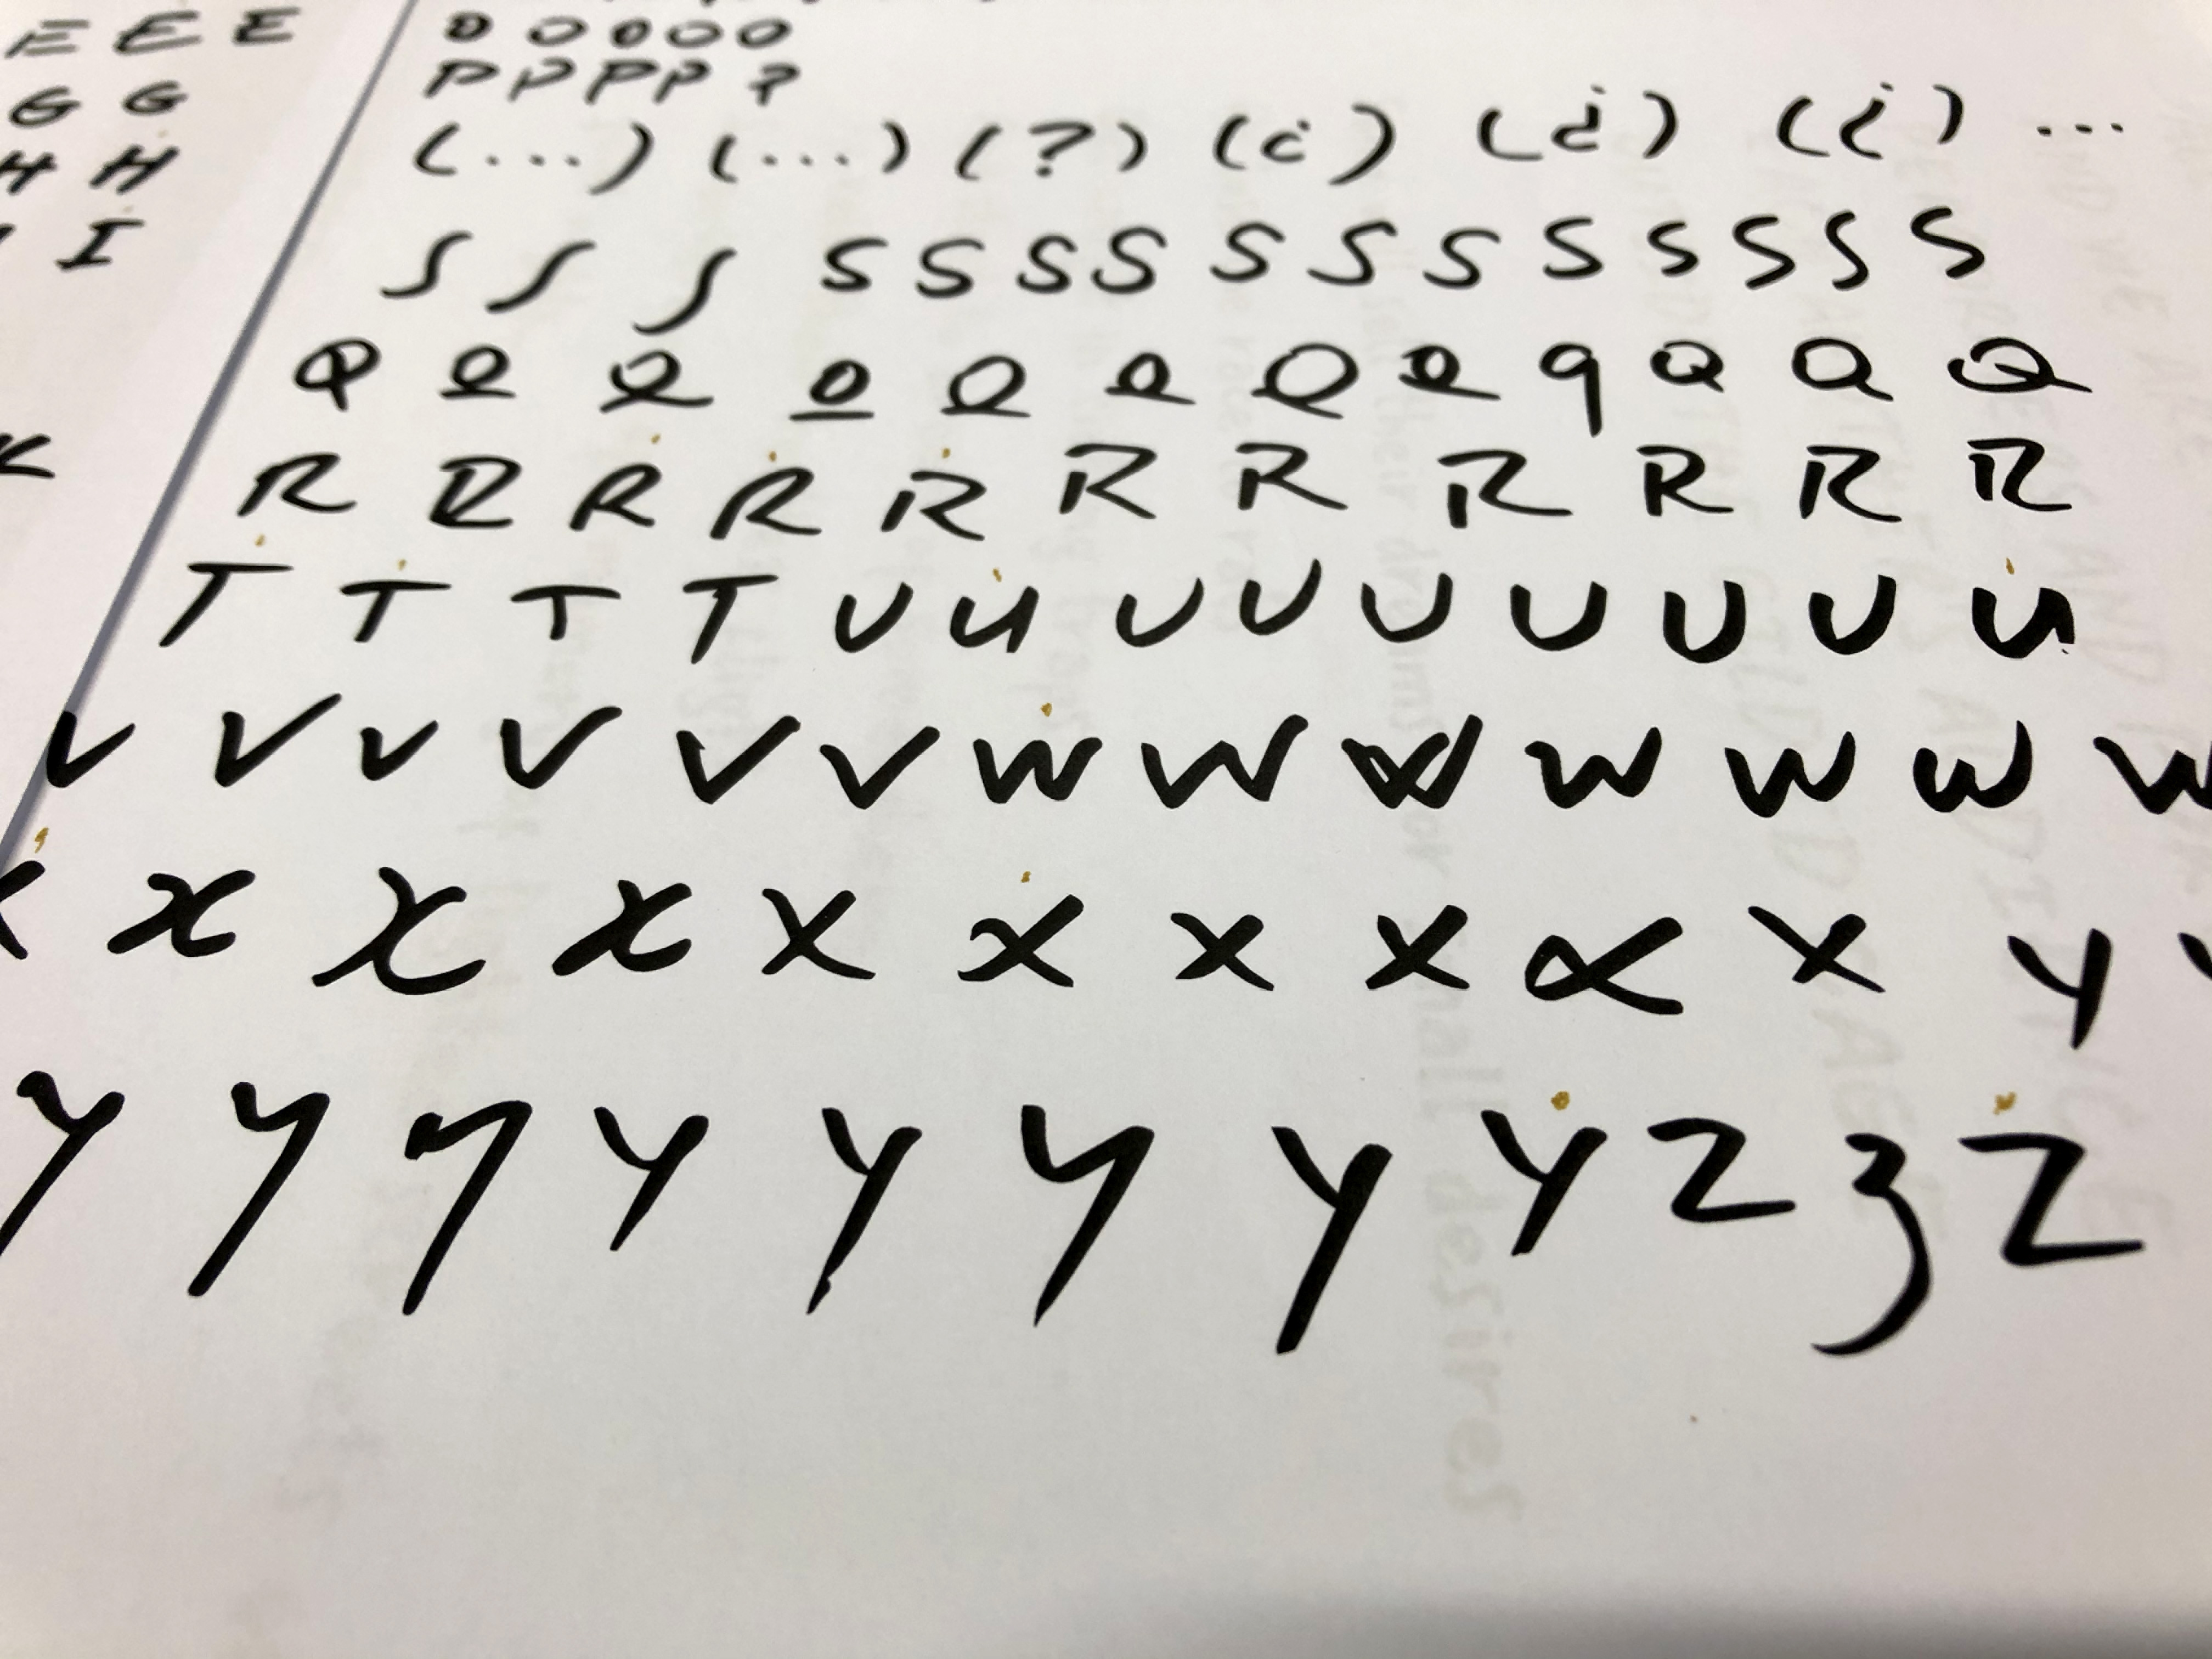 E E E
G G
H H
I
K
O O O O O
P P P P ?
(...) (...) (?) (¿) (¿) (¿) ...
S S S S S S S S S S S S S S S
Q Q Q Q Q Q Q Q q Q Q Q
R R R R R R R R R R R
T T T T U U U U U U U U U
V V V V V V W W W W W W W
X X X X X X X X X X Y
Y Y Y Y Y Y Y Y Z Z Z